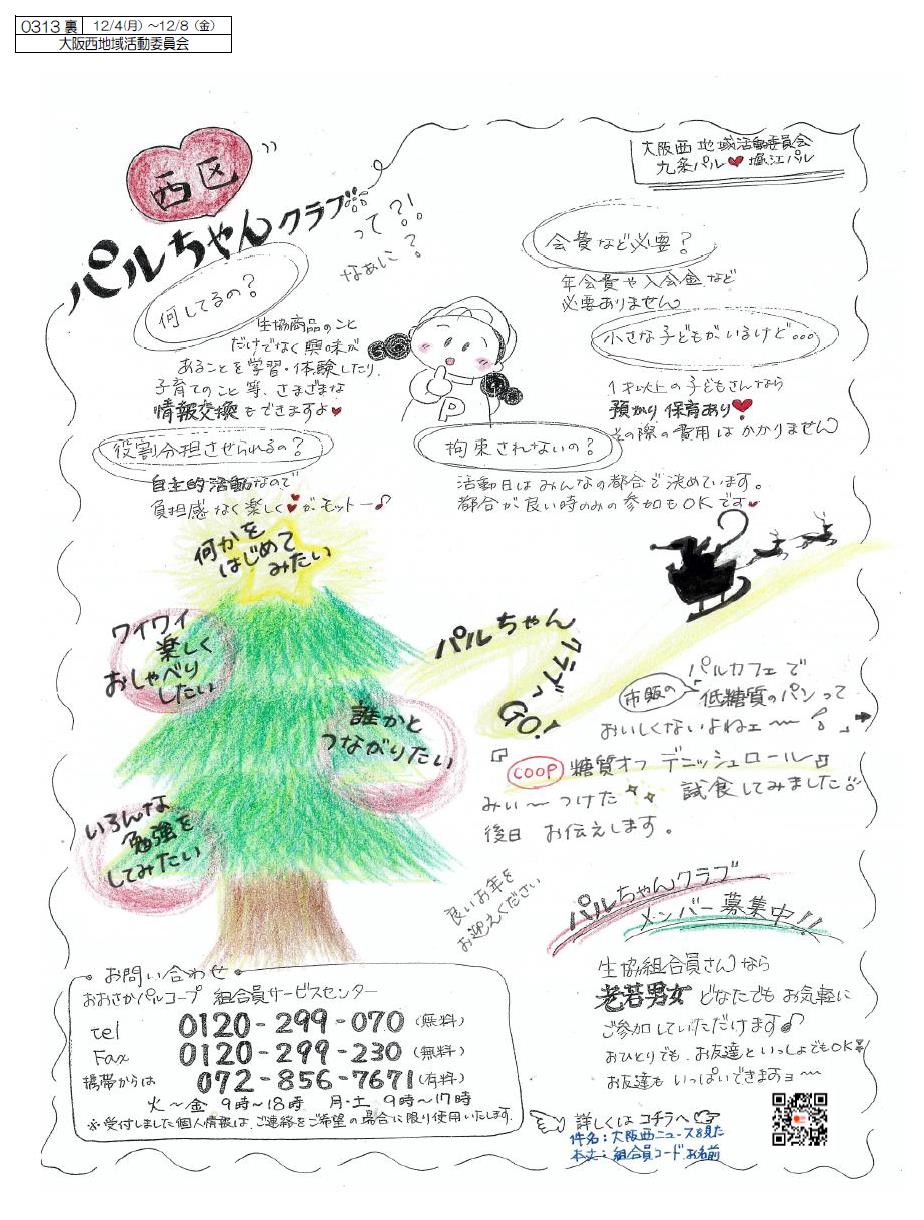 0313 裏 12/4(月) ～12/8（金）
大阪西地域活動委員会
大阪西地域活動委員会
九条パル♥堀江パル
西区
パルちゃんクラブ
って?!
なぁに?
何してるの?
生協商品のこと
だけでなく興味が
あることを学習・体験したり、
子育てのこと等、さまざまな
情報交換をできますよ♥
役割分担させられるの?
自主的活動なので
負担感なく楽しく♥がモットー♪
会費など必要?
年会費や入会金など
必要ありません
小さな子どもがいるけど…
1才以上の子どもさんなら
預かり保育あり♥
その際の費用はかかりません
P
拘束されないの?
活動日はみんなの都合で決めています。
都合が良い時のみの参加もOKです♥
何かを
はじめて
みたい
ワイワイ
楽しく
おしゃべり
したい
誰かと
つながりたい
いろんな
勉強を
してみたい
パルちゃん
クラブへ
GO!
パルカフェで
市販の 低糖質のパンって
おいしくないよねェ〜
『COOP 糖質オフ デニッシュロール』
みぃ〜つけた 試食してみました
後日 お伝えします。
良いお年を
お迎えください
パルちゃんクラブ
メンバー募集中!!
生協組合員さんなら
老若男女 どなたでもお気軽に
ご参加していただけます♪
おひとりでも、お友達といっしょでもOK
お友達もいっぱいできますョ〜
詳しくはコチラへ
件名：大阪西ニュースを見た
本文：組合員コード、お名前
・お問い合わせ・
おおさかパルコープ 組合員サービスセンター
tel 0120-299-070 (無料)
Fax 0120-299-230 (無料)
携帯からは 072-856-7671 (有料)
火〜金 9時〜18時 月・土 9時〜17時
※受付しました個人情報は、ご連絡をご希望の場合に限り使用いたします。